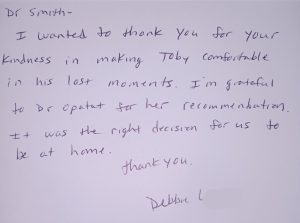 Dr Smith-
I wanted to thank you for your
kindness in making Toby comfortable
in his last moments. I'm grateful
to Dr Opatut for her recommendation.
It was the right decision for us to
be at home.
thank you.
Debbie L